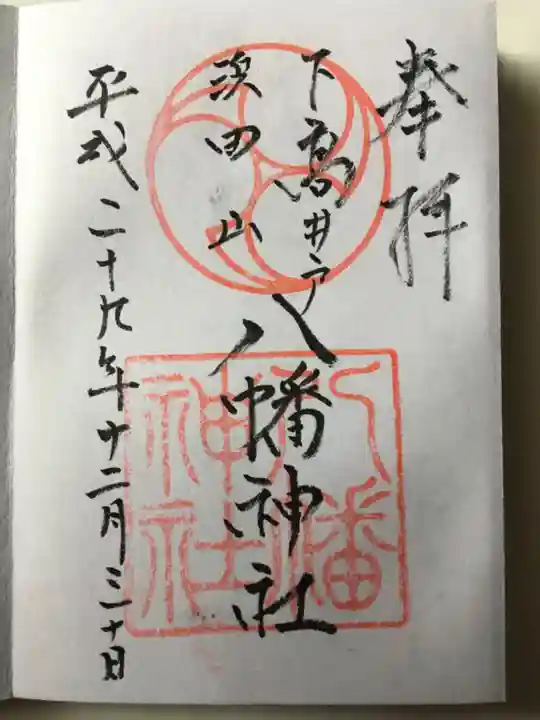 奉拝
下高井戸
浜田山
八幡神社
平成二十九年十二月三十日
八幡
神社